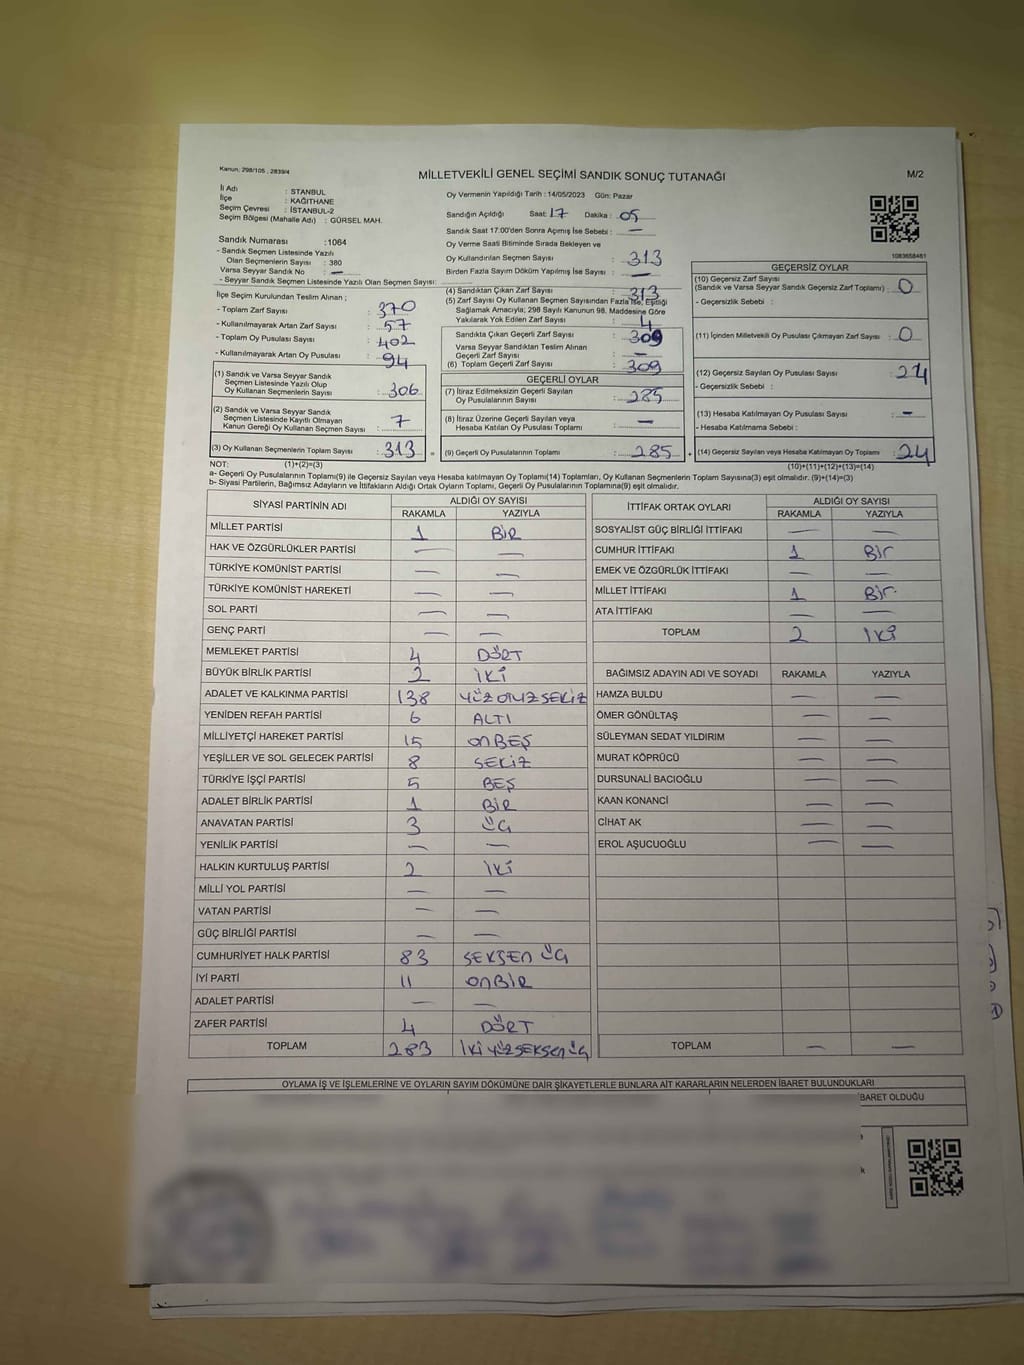 Kanun; 298/105 , 2839/4
MİLLETVEKİLİ GENEL SEÇİMİ SANDIK SONUÇ TUTANAĞI
M/2
İl Adı : İSTANBUL
İlçe : KAĞITHANE
Seçim Çevresi : İSTANBUL-2
Seçim Bölgesi (Mahalle Adı) : GÜRSEL MAH.
Sandık Numarası :1064
- Sandık Seçmen Listesinde Yazılı
Olan Seçmenlerin Sayısı : 380
Varsa Seyyar Sandık No : —
- Seyyar Sandık Seçmen Listesinde Yazılı Olan Seçmen Sayısı:
İlçe Seçim Kurulundan Teslim Alınan ;
- Toplam Zarf Sayısı : 370
- Kullanılmayarak Artan Zarf Sayısı : 57
- Toplam Oy Pusulası Sayısı : 402
- Kullanılmayarak Artan Oy Pusulası : 94
(1) Sandık ve Varsa Seyyar Sandık
Seçmen Listesinde Yazılı Olup
Oy Kullanan Seçmenlerin Sayısı : 306
(2) Sandık ve Varsa Seyyar Sandık
Seçmen Listesinde Kayıtlı Olmayan
Kanun Gereği Oy Kullanan Seçmen Sayısı : 7
(3) Oy Kullanan Seçmenlerin Toplam Sayısı : 313
Oy Vermenin Yapıldığı Tarih : 14/05/2023 Gün: Pazar
Sandığın Açıldığı Saat: 17 Dakika : 05
Sandık Saat 17:00'den Sonra Açılmış İse Sebebi : —
Oy Verme Saati Bitiminde Sırada Bekleyen ve
Oy Kullandırılan Seçmen Sayısı : 313
Birden Fazla Sayım Döküm Yapılmış İse Sayısı : —
(4) Sandıktan Çıkan Zarf Sayısı : 313
(5) Zarf Sayısı Oy Kullanan Seçmen Sayısından Fazla İse, Eşitliği
Sağlamak Amacıyla; 298 Sayılı Kanunun 98. Maddesine Göre
Yakılarak Yok Edilen Zarf Sayısı : 4
Sandıkta Çıkan Geçerli Zarf Sayısı : 309
Varsa Seyyar Sandıktan Teslim Alınan
Geçerli Zarf Sayısı : —
(6) Toplam Geçerli Zarf Sayısı : 309
GEÇERLİ OYLAR
(7) İtiraz Edilmeksizin Geçerli Sayılan
Oy Pusulalarının Sayısı : 285
(8) İtiraz Üzerine Geçerli Sayılan veya
Hesaba Katılan Oy Pusulası Toplamı : —
= (9) Geçerli Oy Pusulalarının Toplamı : 285
1083658461
GEÇERSİZ OYLAR
(10) Geçersiz Zarf Sayısı
(Sandık ve Varsa Seyyar Sandık Geçersiz Zarf Toplamı) : 0
- Geçersizlik Sebebi :
(11) İçinden Milletvekili Oy Pusulası Çıkmayan Zarf Sayısı : 0
(12) Geçersiz Sayılan Oy Pusulası Sayısı : 24
- Geçersizlik Sebebi :
(13) Hesaba Katılmayan Oy Pusulası Sayısı : —
- Hesaba Katılmama Sebebi :
+ (14) Geçersiz Sayılan veya Hesaba Katılmayan Oy Toplamı : 24
NOT: (1)+(2)=(3) (10)+(11)+(12)+(13)=(14)
a- Geçerli Oy Pusulalarının Toplamı(9) ile Geçersiz Sayılan veya Hesaba katılmayan Oy Toplamı(14) Toplamları, Oy Kullanan Seçmenlerin Toplam Sayısına(3) eşit olmalıdır. (9)+(14)=(3)
b- Siyasi Partilerin, Bağımsız Adayların ve İttifakların Aldığı Ortak Oyların Toplamı, Geçerli Oy Pusulalarının Toplamına(9) eşit olmalıdır.
SİYASİ PARTİNİN ADI ALDIĞI OY SAYISI
RAKAMLA YAZIYLA
MİLLET PARTİSİ 1 BİR
HAK VE ÖZGÜRLÜKLER PARTİSİ — —
TÜRKİYE KOMÜNİST PARTİSİ — —
TÜRKİYE KOMÜNİST HAREKETİ — —
SOL PARTİ — —
GENÇ PARTİ — —
MEMLEKET PARTİSİ 4 DÖRT
BÜYÜK BİRLİK PARTİSİ 2 İKİ
ADALET VE KALKINMA PARTİSİ 138 YÜZ OTUZ SEKİZ
YENİDEN REFAH PARTİSİ 6 ALTI
MİLLİYETÇİ HAREKET PARTİSİ 15 ONBEŞ
YEŞİLLER VE SOL GELECEK PARTİSİ 8 SEKİZ
TÜRKİYE İŞÇİ PARTİSİ 5 BEŞ
ADALET BİRLİK PARTİSİ 1 BİR
ANAVATAN PARTİSİ 3 ÜÇ
YENİLİK PARTİSİ — —
HALKIN KURTULUŞ PARTİSİ 2 İKİ
MİLLİ YOL PARTİSİ — —
VATAN PARTİSİ — —
GÜÇ BİRLİĞİ PARTİSİ — —
CUMHURİYET HALK PARTİSİ 83 SEKSEN ÜÇ
İYİ PARTİ 11 ONBİR
ADALET PARTİSİ — —
ZAFER PARTİSİ 4 DÖRT
TOPLAM 283 İKİ YÜZ SEKSEN ÜÇ
İTTİFAK ORTAK OYLARI ALDIĞI OY SAYISI
RAKAMLA YAZIYLA
SOSYALİST GÜÇ BİRLİĞİ İTTİFAKI — —
CUMHUR İTTİFAKI 1 Bir
EMEK VE ÖZGÜRLÜK İTTİFAKI — —
MİLLET İTTİFAKI 1 Bir
ATA İTTİFAKI — —
TOPLAM 2 İKİ
BAĞIMSIZ ADAYIN ADI VE SOYADI RAKAMLA YAZIYLA
HAMZA BULDU — —
ÖMER GÖNÜLTAŞ — —
SÜLEYMAN SEDAT YILDIRIM — —
MURAT KÖPRÜCÜ — —
DURSUNALİ BACIOĞLU — —
KAAN KONANCİ — —
CİHAT AK — —
EROL AŞUCUOĞLU — —
TOPLAM — —
OYLAMA İŞ VE İŞLEMLERİNE VE OYLARIN SAYIM DÖKÜMÜNE DAİR ŞİKAYETLERLE BUNLARA AİT KARARLARIN NELERDEN İBARET BULUNDUKLARI
İBARET OLDUĞU